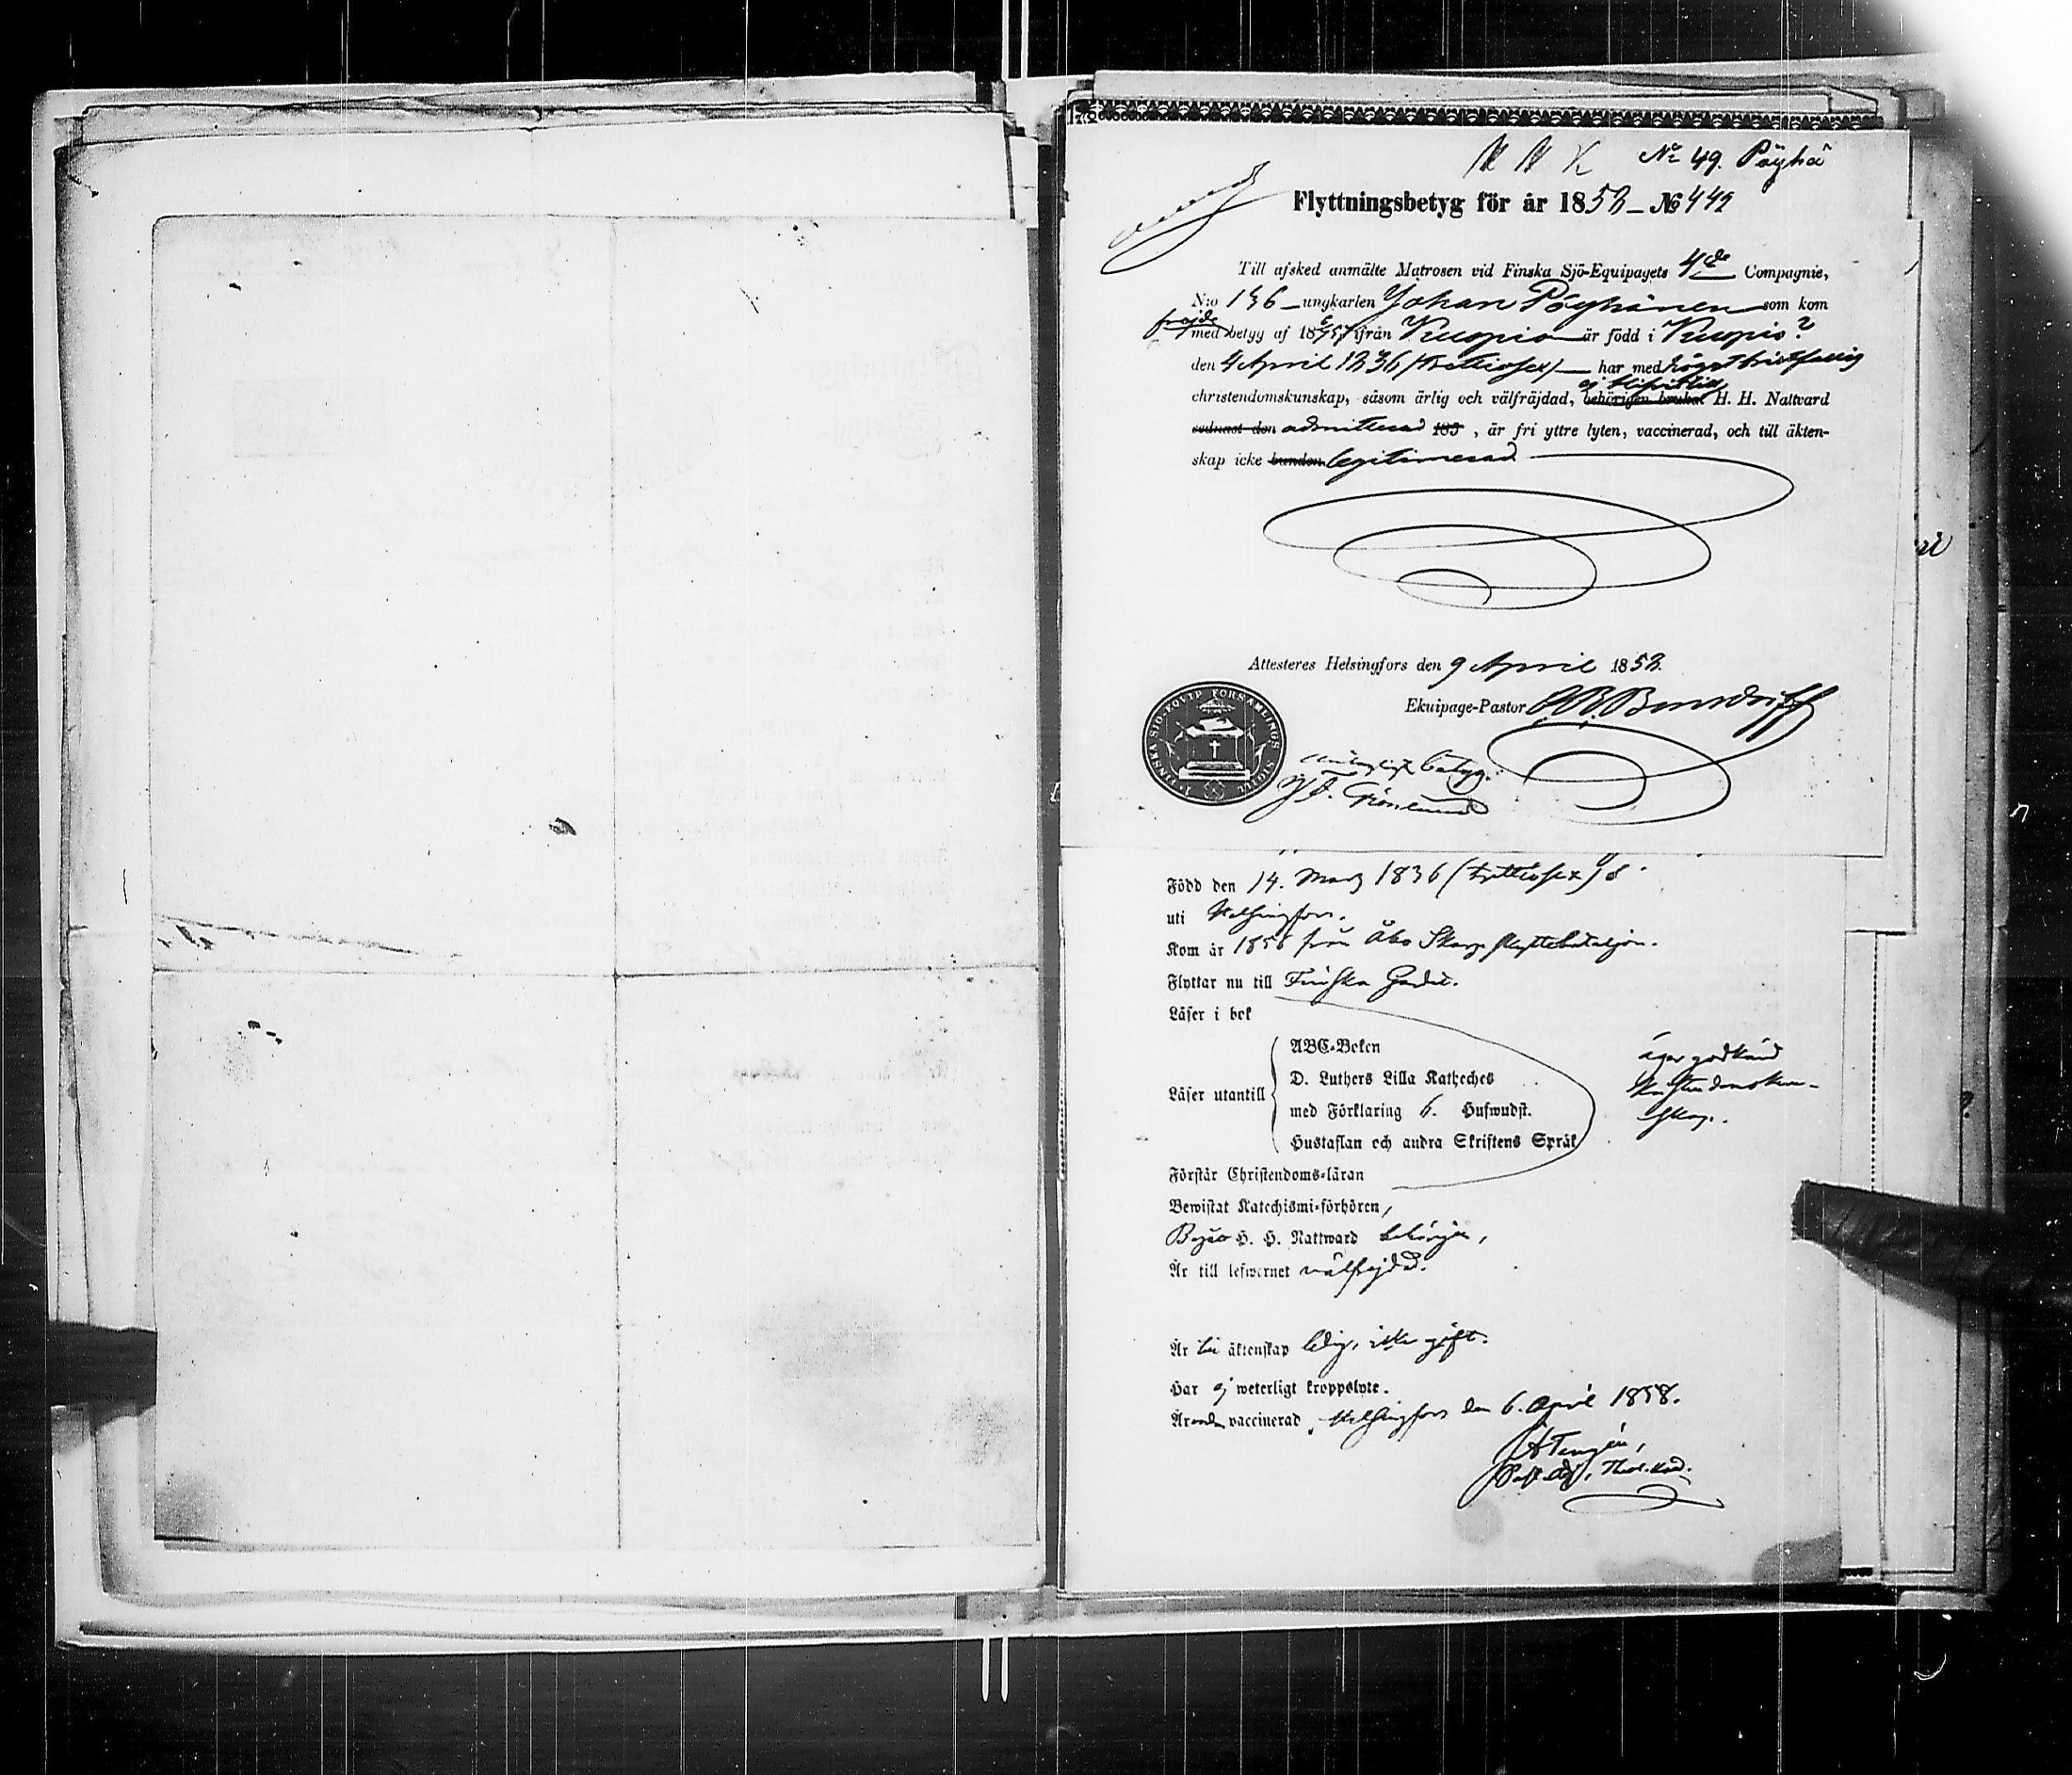 No 49. Pöyhä
Flyttningsbetyg för år 1858 - No 442
Till afsked anmälte Matrosen vid Finska Sjö-Equipagets 4de Compagnie,
N:o 136 ungkarlen Johan Pöyhänen som kom
frejde
med betyg af 1857 ifrån Kuopio är född i Kuopio?
den 4 April 1836 (trettiosex) har med högst bristfällig
ej blifvit till
christendomskunskap, såsom ärlig och välfräjdad, behörigen brukat H. H. Nattvard
sednast den admitterad 185 , är fri yttre lyten, vaccinerad, och till äkten-
skap icke bunden legitimerad
Attesteres Helsingfors den 9 April 1858.
Ekuipage-Pastor
FINSKA SJÖ-EQVIP FÖRSAMLINGS SIGILL
betyg.
Grönlund
Född den 14. Mars 1836 (trettiosex)
uti Helsingfors.
Kom år 1856 från Åbo Skarpskyttebataljon.
Flyttar nu till Finska Gardet.
Läser i bok
ABC-Boken
D. Luthers Lilla Katheches
Läser utantill
med Förklaring 6. Hufwudst.
Hustaflan och andra Skriftens Språk
äger godkänd
kristendomskun-
skap.
Förstår Christendoms-läran
Bewistat Katechismi-förhören,
Begår H. H. Nattward behörigen,
Är till lefwernet välfrejdad.
Är till äktenskap ledig, icke gift.
Har ej weterligt kroppslyte.
Är vaccinerad, Helsingfors den 6. April 1858.